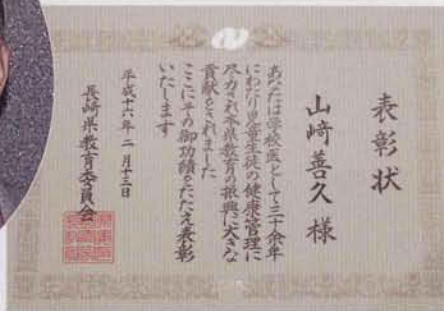 表彰状
山﨑善久様
あなたは学校医として三十余年
にわたり児童生徒の健康管理に
尽力され本県教育の振興に大きな
貢献をされました
ここにその御功績をたたえ表彰
いたします
平成十六年二月十三日
長崎県教育委員会